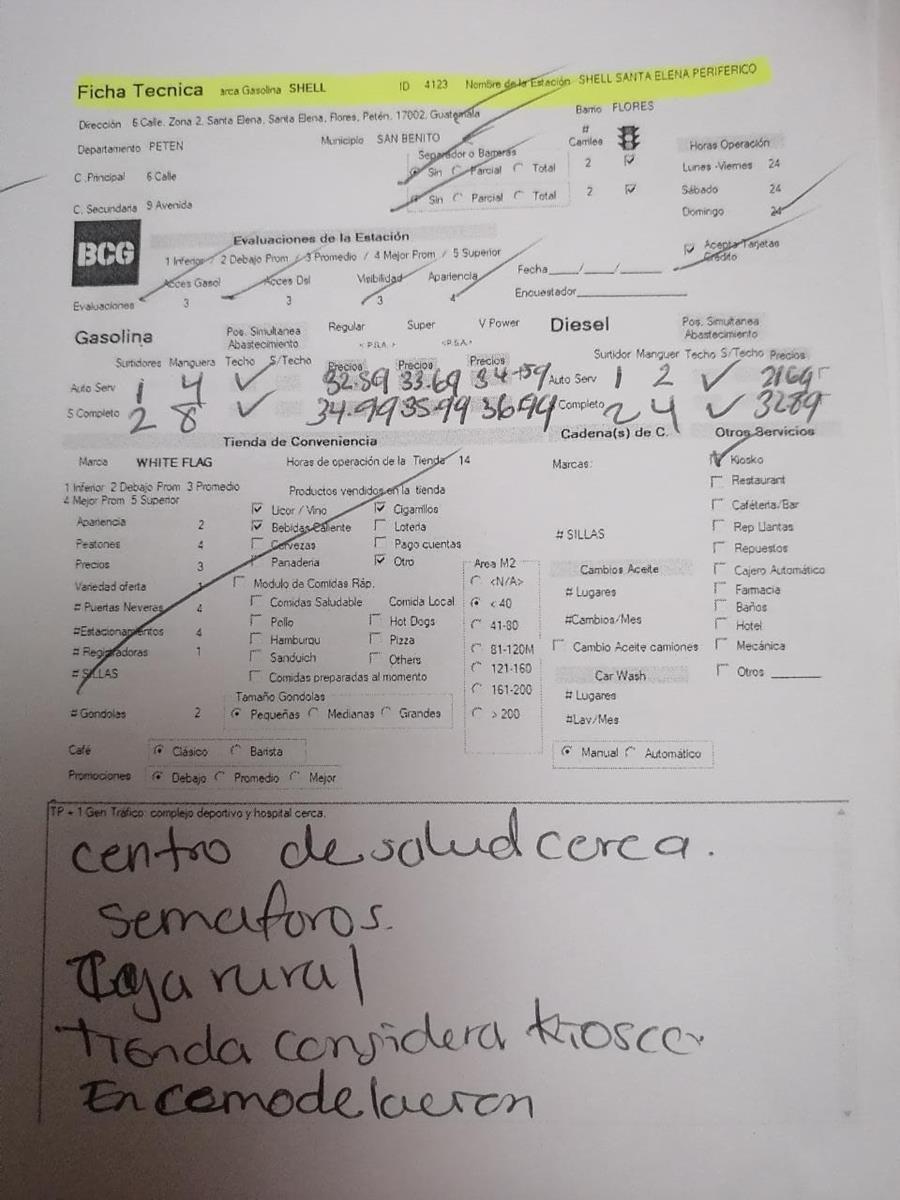 Ficha Tecnica arca Gasolina SHELL ID 4123 Nombre de la Estación SHELL SANTA ELENA PERIFERICO
Dirección 6 Calle, Zona 2, Santa Elena, Santa Elena, Flores, Petén, 17002, Guatemala Barrio FLORES
Departamento PETEN Municipio SAN BENITO # Carriles Horas Operación
Separador o Barreras
C .Principal 6 Calle Sin Parcial Total 2 Lunes -Viernes 24
C. Secundaria 9 Avenida Sin Parcial Total 2 Sábado 24
Domingo 24
BCG Evaluaciones de la Estación Acepta Tarjetas Crédito
1 Inferior / 2 Debajo Prom / 3 Promedio / 4 Mejor Prom / 5 Superior
Acces Gasol Acces Dsl Visibilidad Apariencia Fecha___/___/___
Evaluaciones 3 3 3 4 Encuestador
Gasolina Pos. Simultanea Abastecimiento Regular Super V Power Diesel Pos. Simultanea Abastecimiento
Surtidores Manguera Techo S/Techo Precios Precios Precios Surtidor Manguer Techo S/Techo Precios
Auto Serv 1 4 ✓ 32.89 33.69 Auto Serv 1 2 ✓
S Completo 2 8 ✓ 34.99 35.99 36.99 Completo 2 4 ✓
Tienda de Conveniencia Cadena(s) de C. Otros Servicios
Marca WHITE FLAG Horas de operación de la Tienda 14 Marcas: Kiosko
1 Inferior 2 Debajo Prom 3 Promedio Productos vendidos en la tienda Restaurant
4 Mejor Prom 5 Superior
Licor / Vino Cigarrillos Cafétería/Bar
Apariencia 2 Bebidas Caliente Loteria # SILLAS Rep Llantas
Peatones 4 Cervezas Pago cuentas Repuestos
Precios 3 Panaderia Otro Area M2 Cambios Aceite Cajero Automático
Variedad oferta 1 Modulo de Comidas Ráp. <N/A> # Lugares Farmacia
# Puertas Neveras 4 Comidas Saludable Comida Local < 40 Baños
#Estacionamientos 4 Pollo Hot Dogs 41-80 #Cambios/Mes Hotel
# Registradoras 1 Hamburqu Pizza 81-120M Cambio Aceite camiones Mecánica
# SILLAS Sanduich Others 121-160 Car Wash Otros
Comidas preparadas al momento 161-200 # Lugares
Tamaño Gondolas
# Gondolas 2 Pequeñas Medianas Grandes > 200 #Lav/Mes
Café Clásico Barista Manual Automático
Promociones Debajo Promedio Mejor
TP + 1 Gen Tráfico: complejo deportivo y hospital cerca.
centro de salud cerca.
semaforos.
Caja rural
Tienda considera kiosco